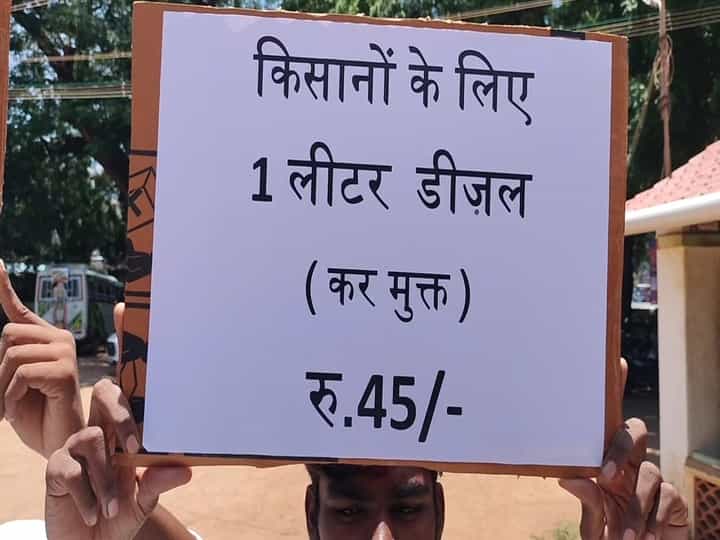 किसानों के लिए
1 लीटर डीज़ल
( कर मुक्त )
रु.45/-